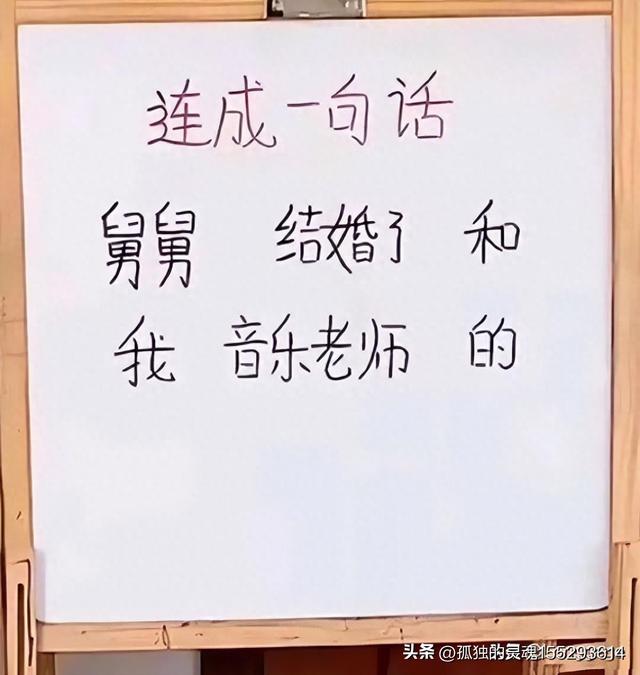 连成一句话
舅舅 结婚了 和
我 音乐老师 的
头条 @孤独的灵魂155293614